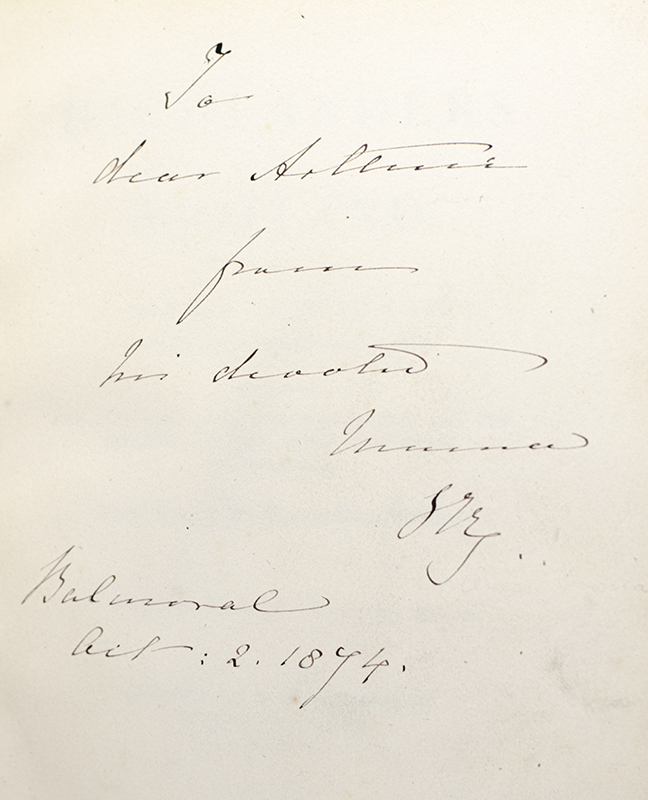 To
dear Arthur
from
his devoted
Mama
VRI
Balmoral
Oct: 2. 1874.